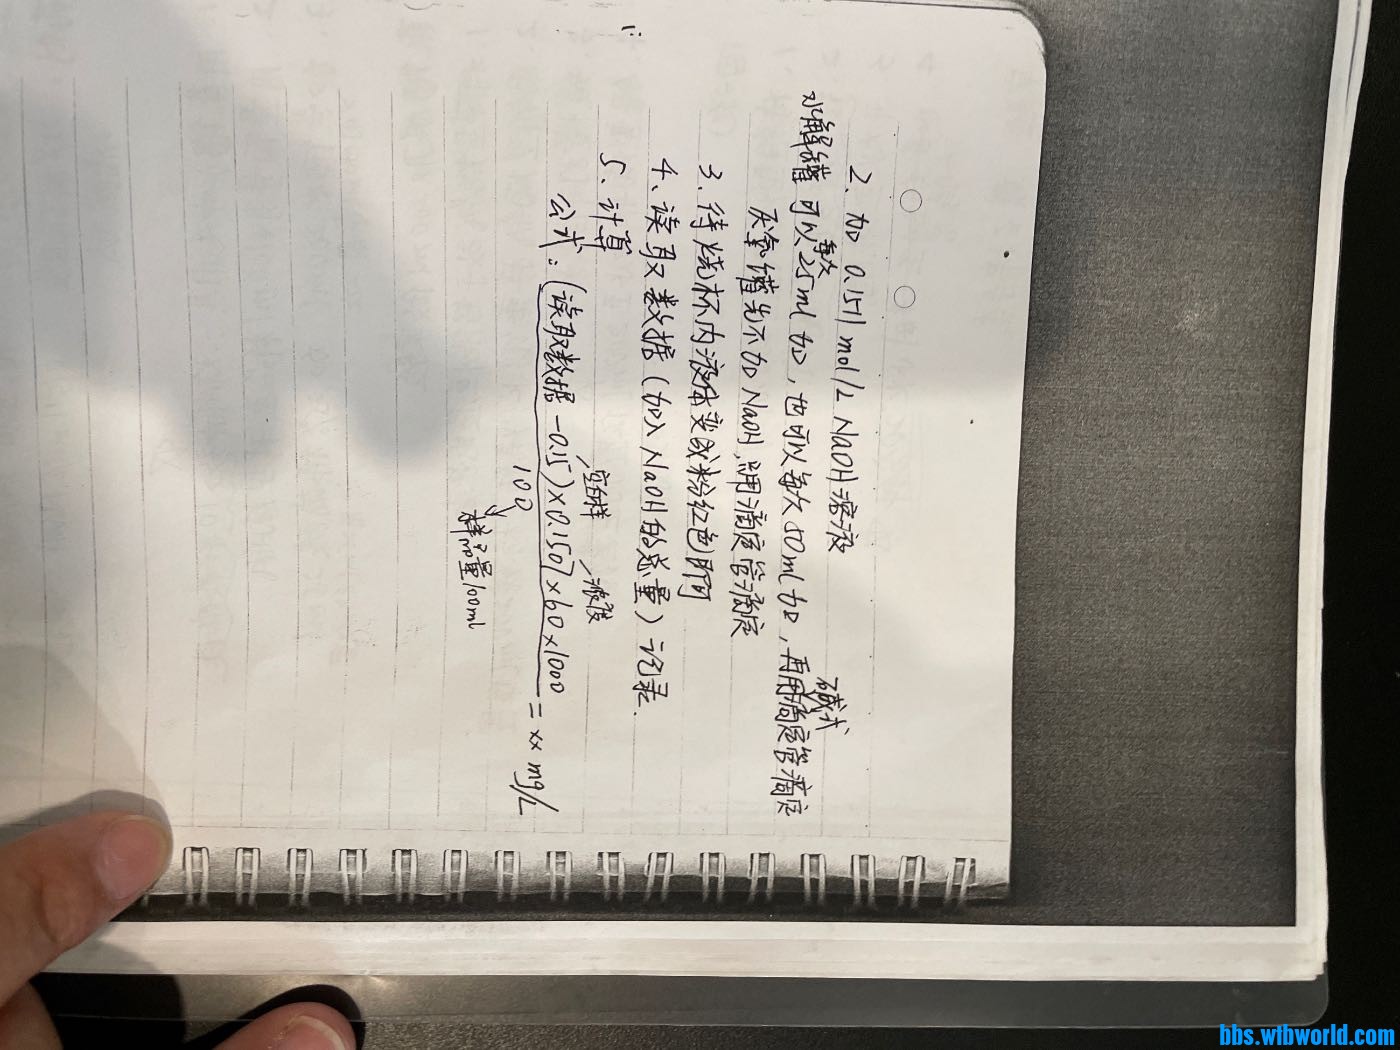 2、加 0.1511 mol/L NaOH溶液
水解罐 可以每次25ml加，也可以每次50ml加，再用碱式滴定管滴定
厌氧罐先不加NaOH，用滴定管滴定
3、待烧杯内液体变成粉红色即可
4、读取数据（加入NaOH的总量）记录.
5、计算
空白样 浓度
公式：(读取数据-0.15)×0.1507×60×1000 = xx mg/L
100
样品量100ml
bbs.wtbworld.com